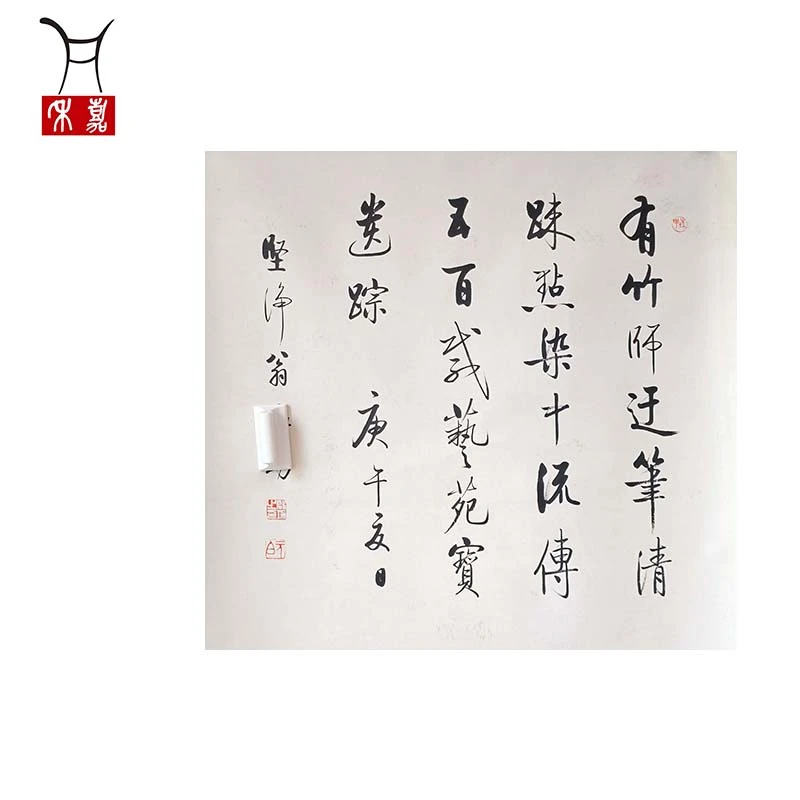 有竹師迂筆清
踈點染中流傳
五百載藝苑寶
遺踪 庚午夏日
堅淨翁
嘉